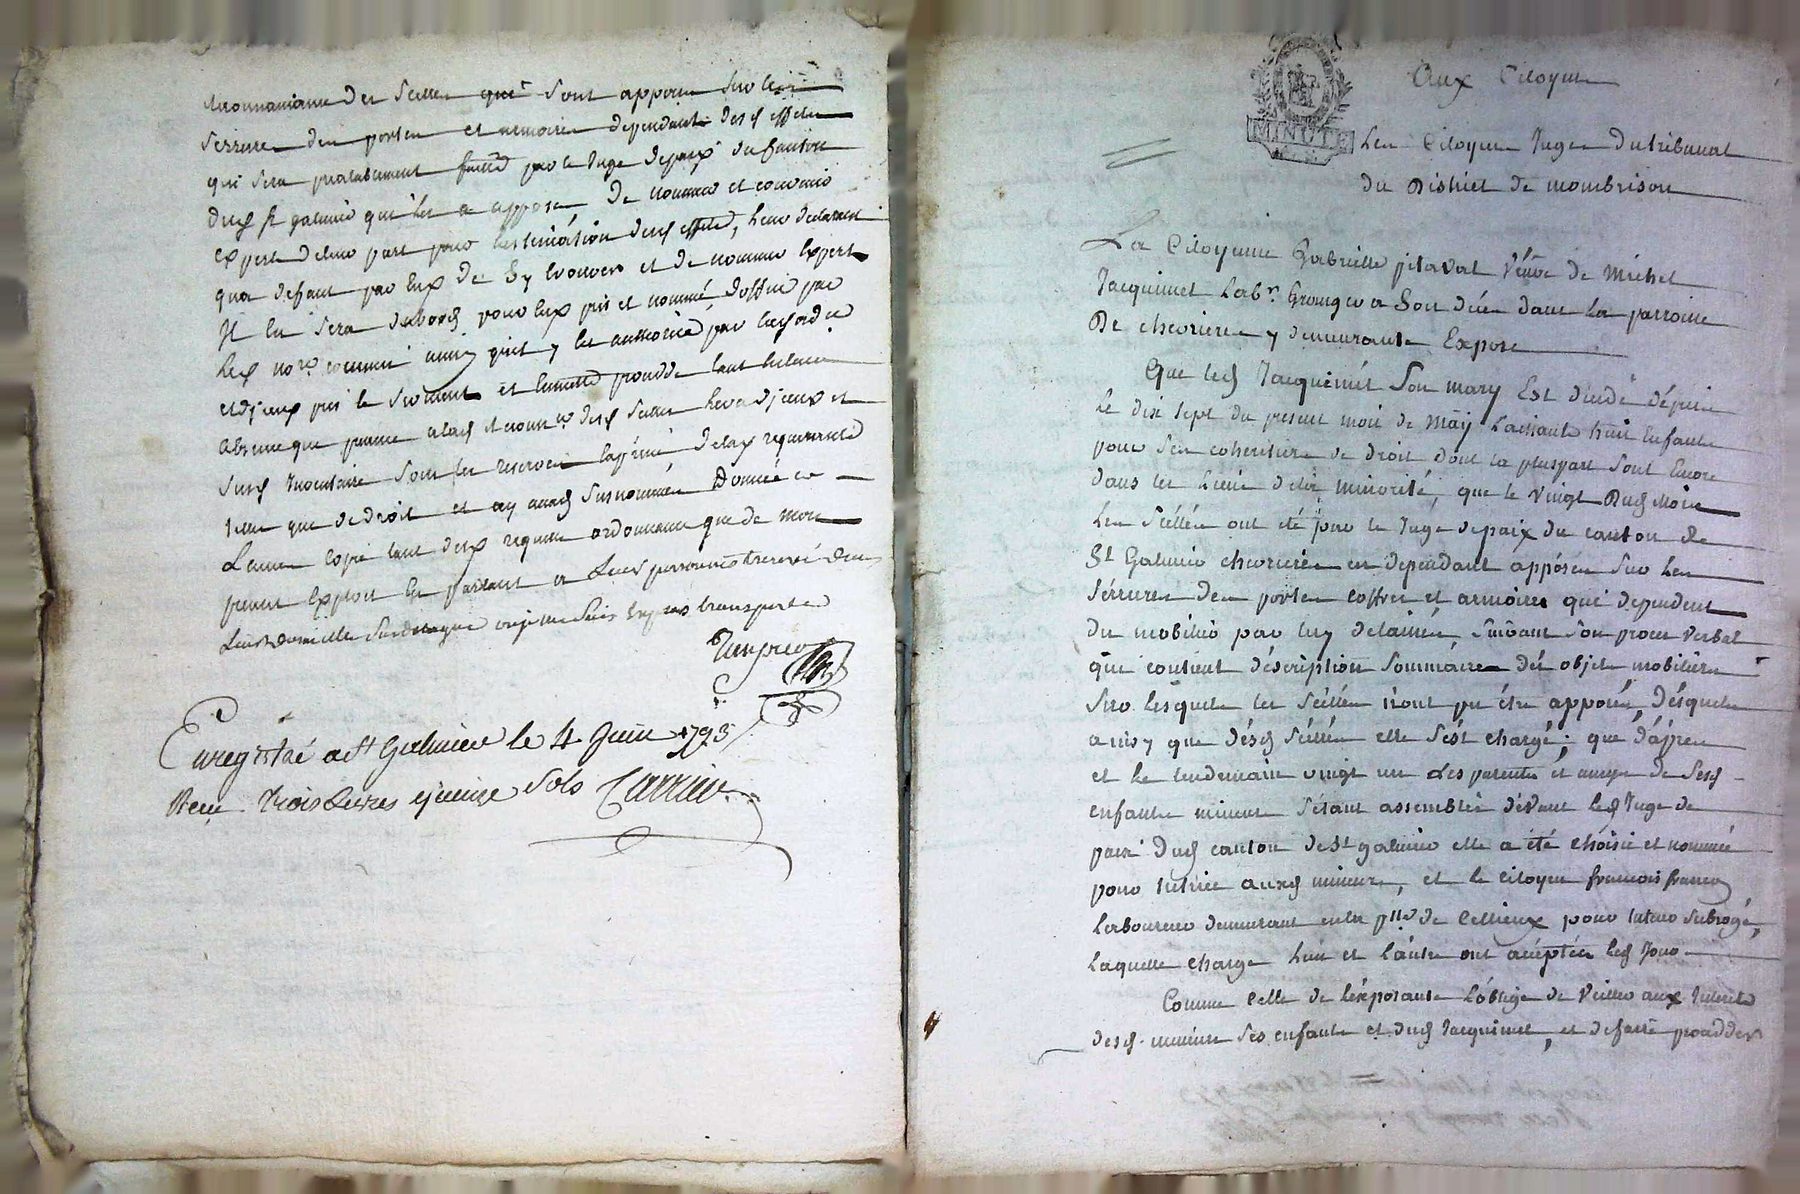 des scellés qui sont apposés sur les
serrures des portes et armoires dependants desd effets
qui sera prealablement faitte par le Juge de paix du canton
dud St galmier qui les a apposés de nommer et convenir
expert de leur part pour l'estimation desd effets, leur declarant
qua defaut par eux de s'y trouver et de nommer expert
Il en sera dabord pour eux pris et nommé d'office par
led no.re commis ainsy qu'il y est authorisé par lad ord.ce
et d'jceux pris le serment et ensuitte procedde tant en leur
absence que presence a lad reconn.ce desd scellés levée d'jceux et
susd Inventaire sous les reserves de lax requerante
que de droit et ay auxd susnommés Donnée ce
Copie tant desd requette ordonnance que de mon
present Exploit En parlant a leurs personnes trouvé dans
leurs domicille ou je me suis Expres transporté
Enregistré a St Galmier le 4 Juin 1793
Reçu trois Livres quinze Sols Carrier
Aux Citoyens
MINUTE
Les Citoyens Juges Du tribunal
du District de montbrison
La Citoyenne Gabrielle pitaval Veuve de Michel
Jacquemet Lab.r Granger a son décés dans la parroisse
De chevrieres y demeurante Expose
Que led Jacquemet son mary Est décédé dépuis
le dix sept du present mois de may Laissant huit Enfants
pour ses coheritiers de droit dont la pluspart sont Encore
dans les Liens de la minorité, que le vingt Dud Mois
Les Scéllés ont été par le Juge de paix du canton de
St Galmier chevrieres en dependant apposés sur les
sérrures des portes coffres et armoires qui dependent
du mobilier par luy delaissés, suivant son proces verbal
qui contient déscription sommaire dés objets mobiliers
sur lesquels les scéllés n'ont pu étre apposés, désquels
ainsy que désd scéllés elle s'est chargé; que d'apres
et le lendemain vingt un Les parents et amys de sesd
enfants mineurs s'étant assemblés dévant led Juge de
paix dud canton de St galmier elle a été choisie et nommée
pour tutrice auxd mineurs, et le citoyen francois france
Laboureur demeurant en la p.sse de Cellieux pour tuteur subrogé,
laquelle charge l'un et l'autre ont acéptés led Jour
Comme celle de l'exposante l'oblige de veiller aux Interets
desd mineurs ses enfants et dud Jacquemet, et de faire procedder